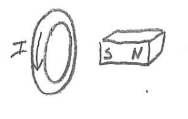 I
S N